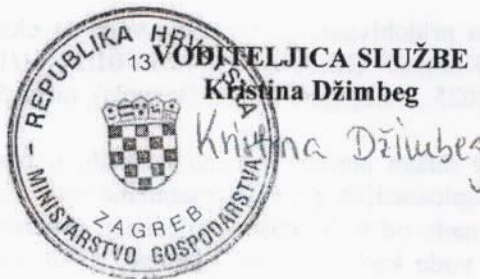 VODITELJICA SLUŽBE
Kristina Džimbeg
Kristina Džimbeg
REPUBLIKA HRVATSKA
13
MINISTARSTVO GOSPODARSTVA
ZAGREB